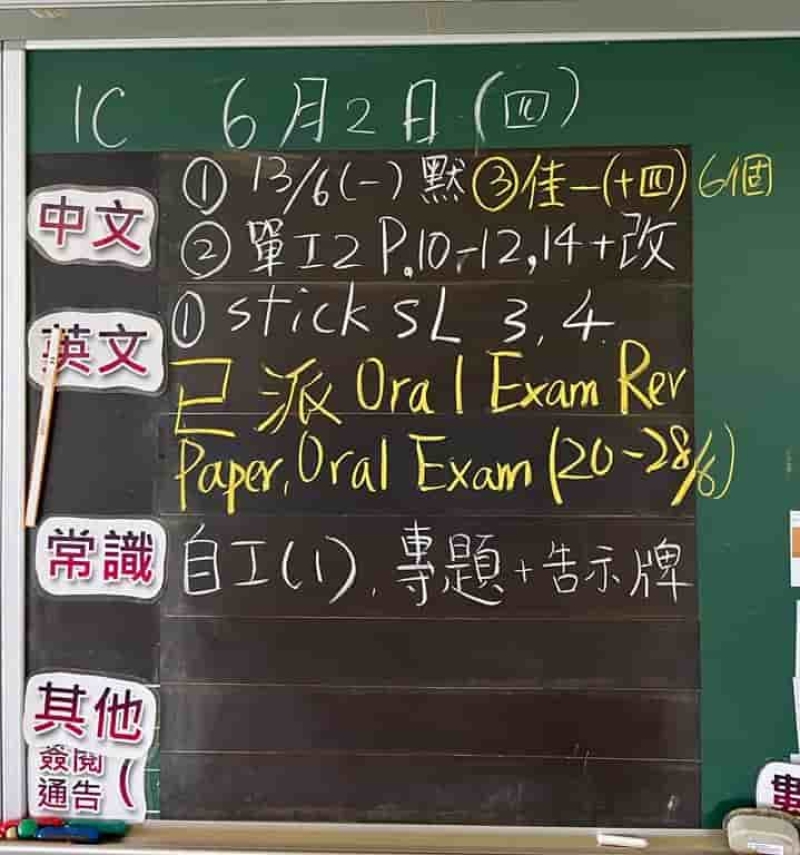 1C 6月2日(四)
中文
① 13/6(一)默 ③佳一(十四)6個
② 單工2 P.10-12,14+改
英文
① stick SL 3,4
已派 Oral Exam Rev
Paper, Oral Exam (20-28/6)
常識
自工(1), 專題+告示牌
其他
簽閱
通告(